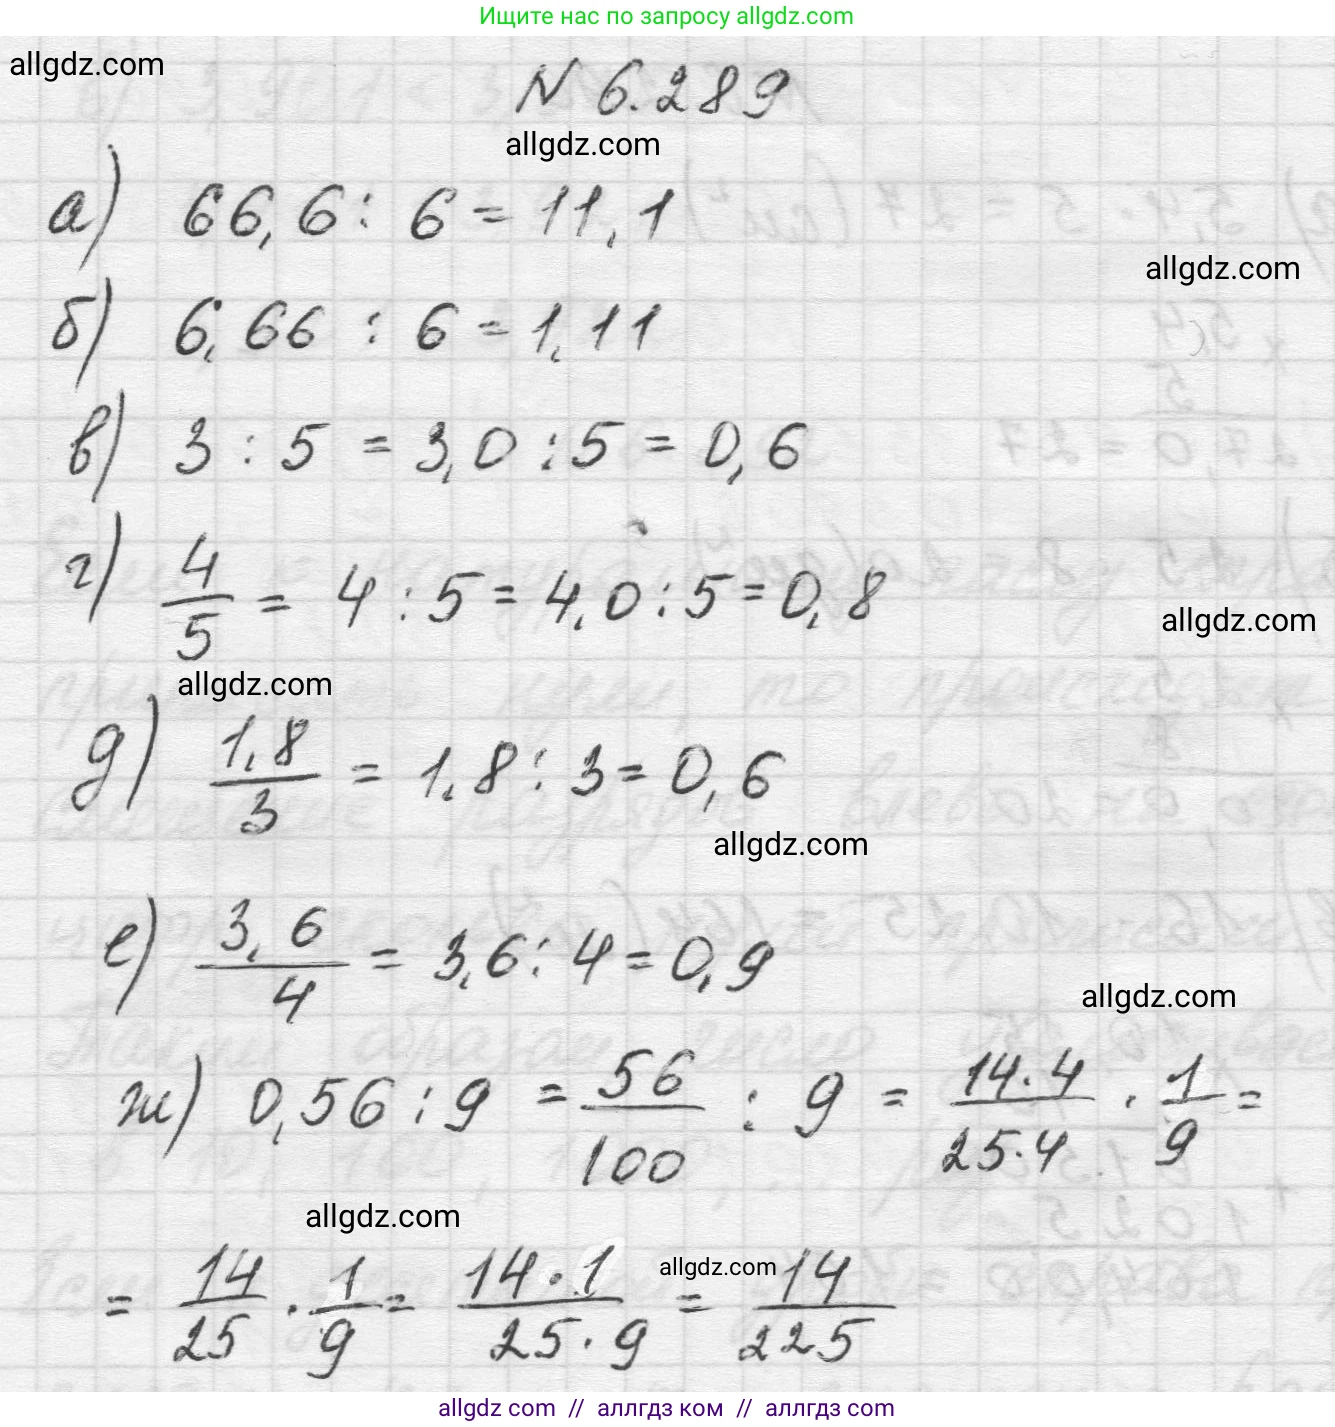 Ищите нас по запросу allgdz.com
allgdz.com
N 6.289
allgdz.com
а) 66,6 : 6 = 11,1
allgdz.com
б) 6,66 : 6 = 1,11
в) 3 : 5 = 3,0 : 5 = 0,6
г) 4/5 = 4 : 5 = 4,0 : 5 = 0,8
allgdz.com
allgdz.com
д) 1,8/3 = 1,8 : 3 = 0,6
allgdz.com
е) 3,6/4 = 3,6 : 4 = 0,9
allgdz.com
ж) 0,56 : 9 = 56/100 : 9 = 14·4/25·4 · 1/9 =
allgdz.com
allgdz.com
= 14/25 · 1/9 = 14·1/25·9 = 14/225
allgdz.com // аллгдз ком // аллгдз.com